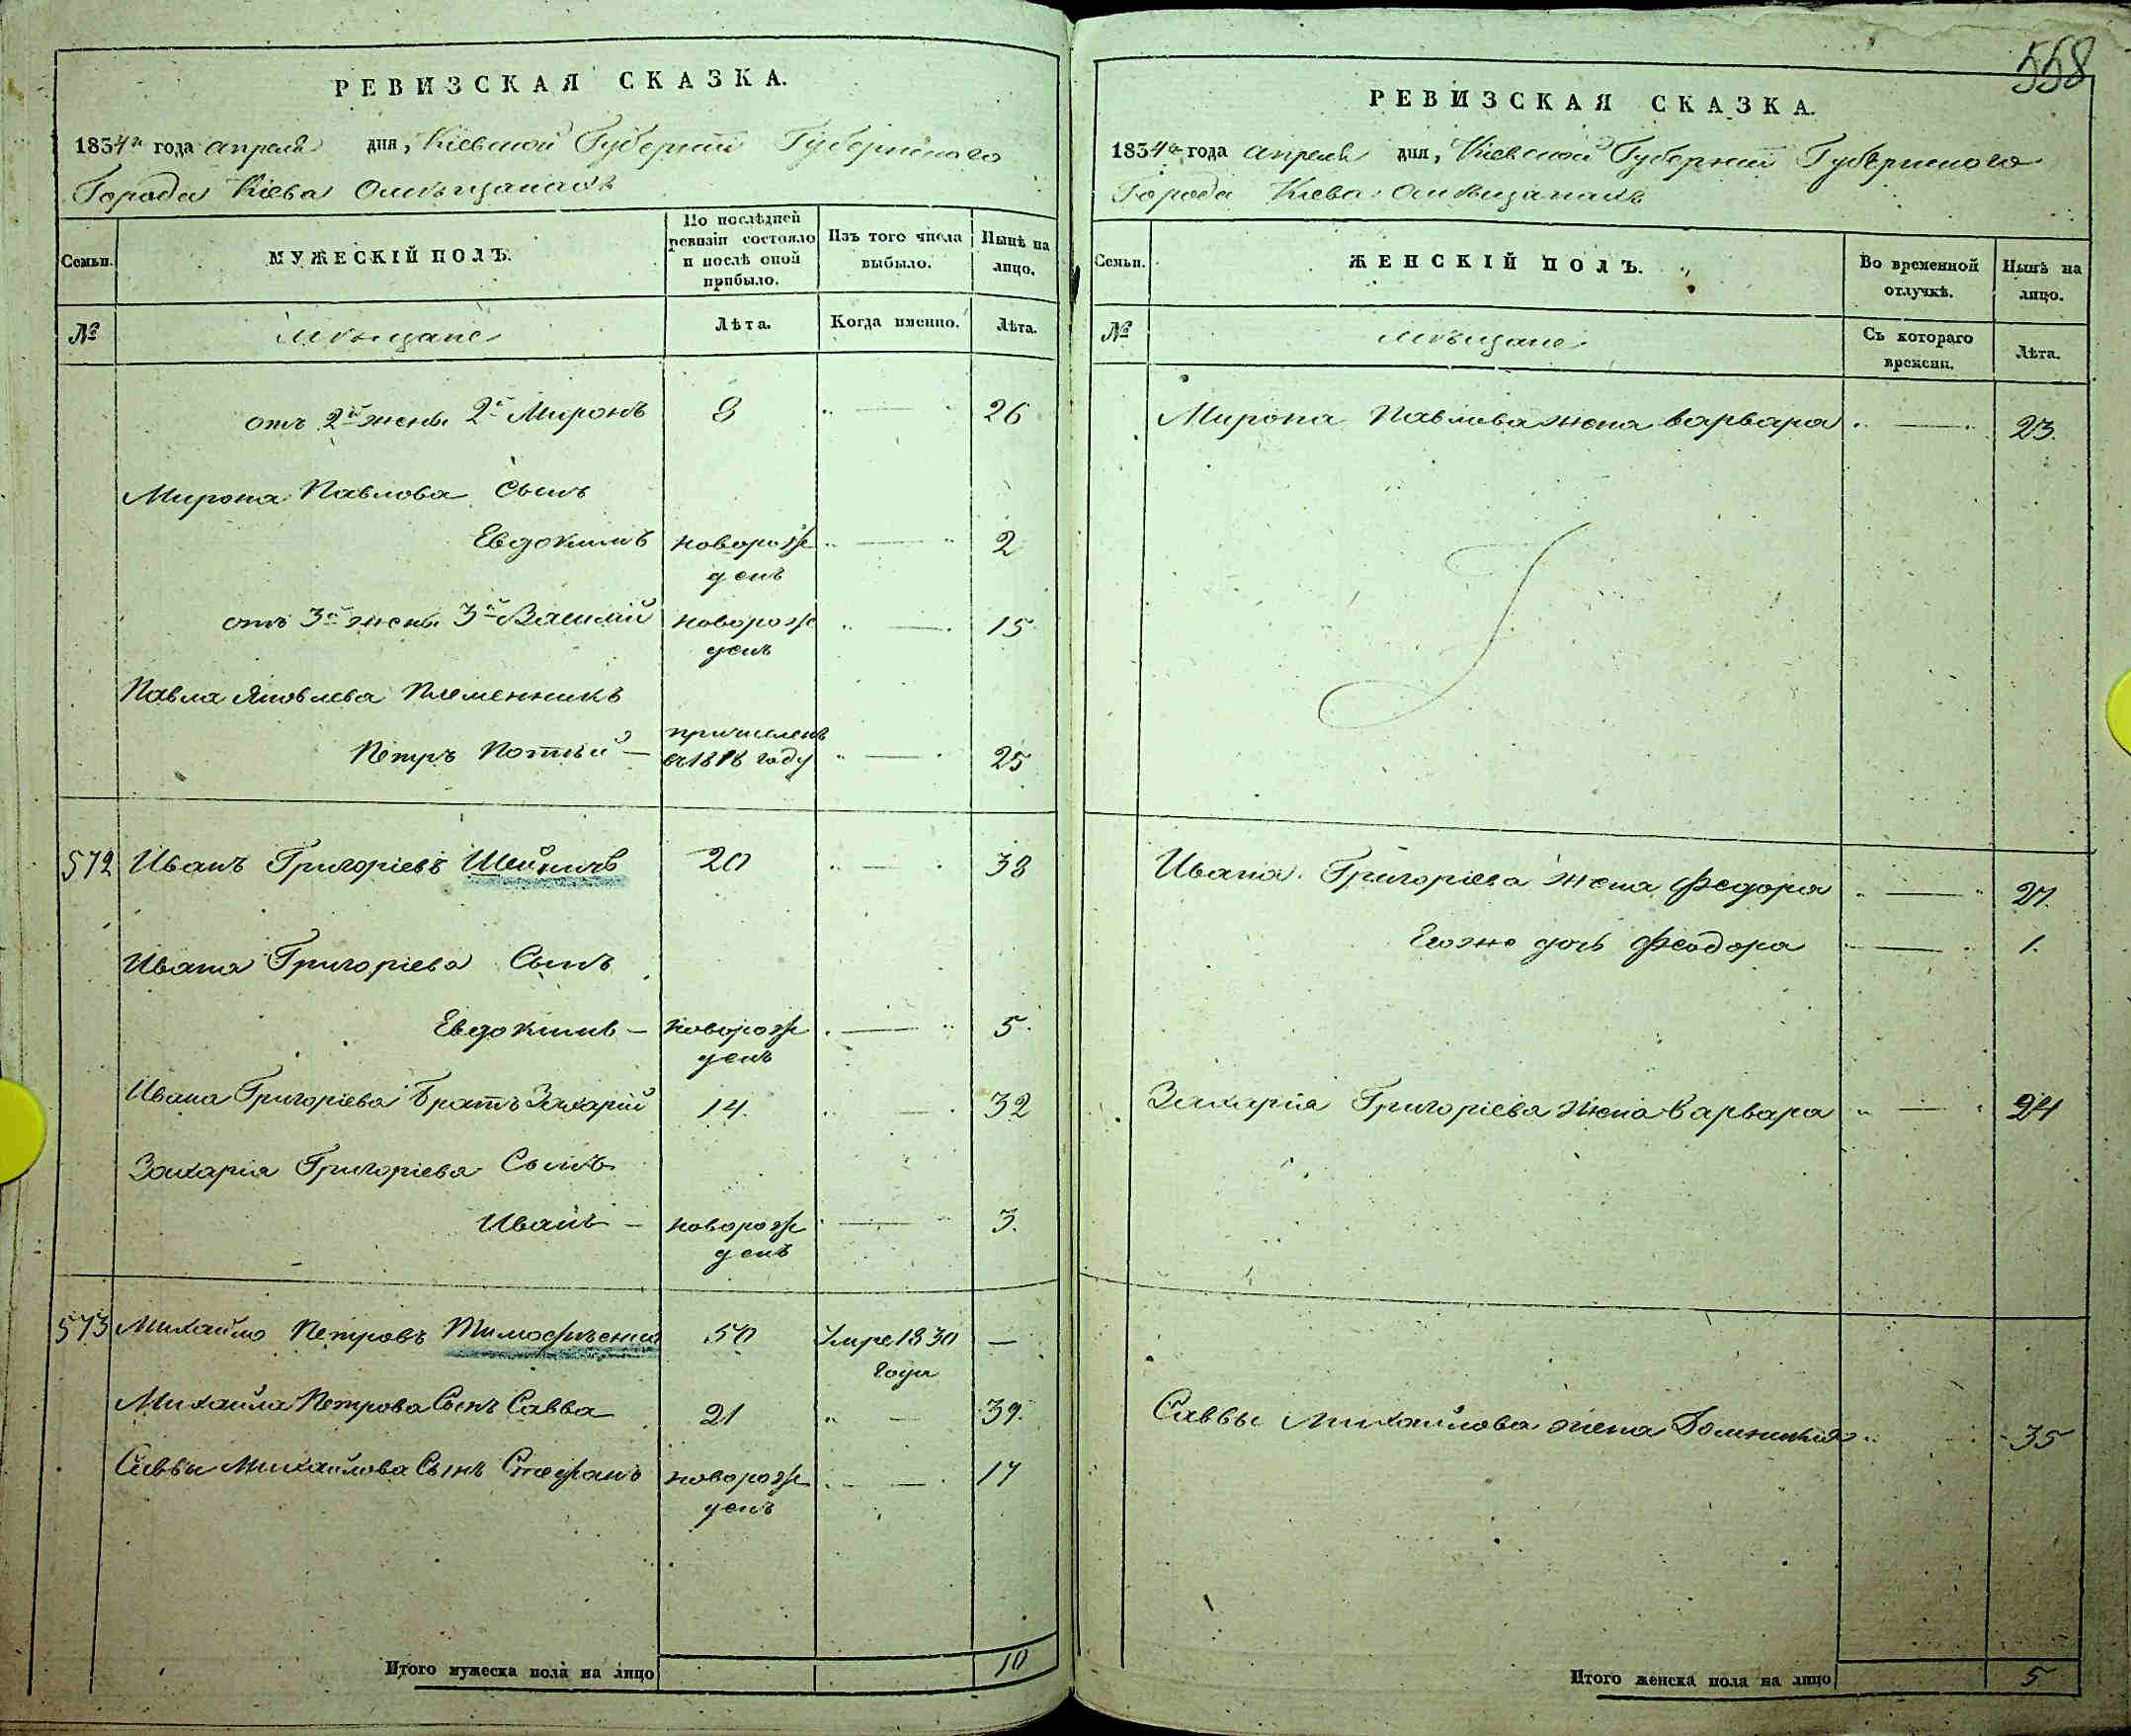 РЕВИЗСКАЯ СКАЗКА.
1834го года апреля дня, Кіевской Губерніи Губернского
Города Кіева Омѣщанахъ
Семьи.
МУЖЕСКІЙ ПОЛЪ.
По послѣдней ревизіи состояло и послѣ оной прибыло.
Изъ того числа выбыло.
Нынѣ на лицо.
№
мѣщане
Лѣта.
Когда именно.
Лѣта.
отъ 2й жены 2й Миронъ 8 26
Мирона Павлова Сынъ
Евдокимъ новорож 2
денъ
отъ 3й жены 3й Василій новорож 15
денъ
Павла Яковлева Племенникъ
причисленъ
Петръ Потѣй — году 25
572 Иванъ Григоріевъ 20 38
Ивана Григоріева Сынъ
Евдокимъ — новорож 5
денъ
Ивана Григоріева Братъ Захарій 14. 32
Захарія Григоріева Сынъ
Иванъ — новорож 3.
денъ
573 Михайло Петровъ Тимофѣенко 50 Умре 1830 —
года
Михайла Петрова Сынъ Савва 21 39.
Саввы Михайлова Сынъ Стефанъ новорож 17
денъ
Итого мужеска пола на лицо 10
558
РЕВИЗСКАЯ СКАЗКА.
1834го года апреля дня, Кіевской Губерніи Губернского
Города Кіева Омѣщанахъ
Семьи.
ЖЕНСКІЙ ПОЛЪ.
Во временной отлучкѣ.
Нынѣ на лицо.
№
мѣщане
Съ котораго времени.
Лѣта.
Мирона Павлова жена варвара 23.
Ивана Григоріева жена Федора 27.
Егоже дочь Феодора 1.
Захарія Григоріева жена Варвара 24
Саввы Михайлова жена Домникія 35
Итого женска пола на лицо 5